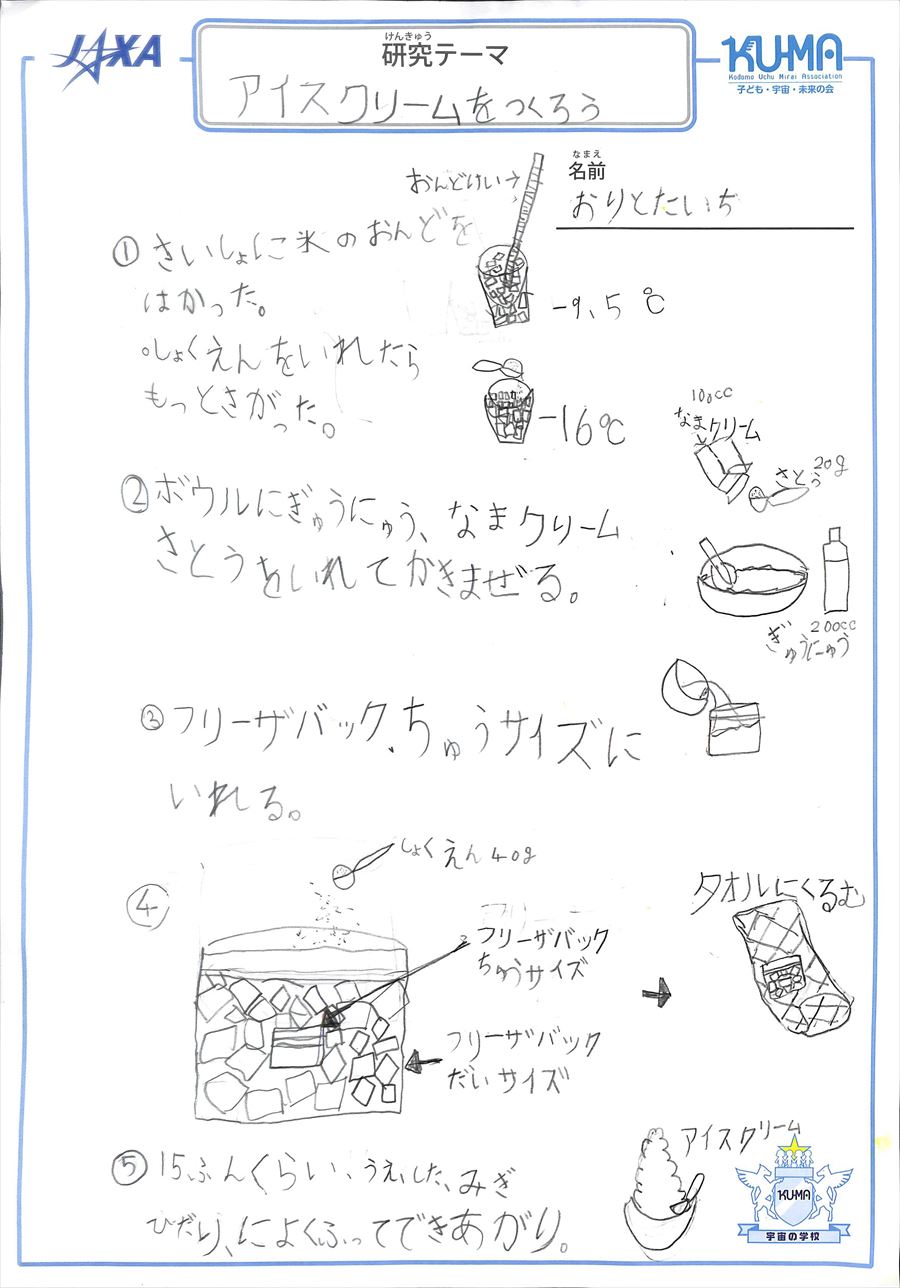 JAXA
けんきゅう
研究テーマ
アイスクリームをつくろう
KU-MA
Kodomo Uchu Mirai Association
子ども・宇宙・未来の会
なまえ
名前
おりとたいち
おんどけい→
① さいしょに氷のおんどを
はかった。
-9、5℃
・しょくえんをいれたら
もっとさがった。
-16℃
100cc
なまクリーム
さとう20g
②ボウルにぎゅうにゅう、なまクリーム
さとうをいれてかきまぜる。
200cc
ぎゅうにゅう
③フリーザバック、ちゅうサイズに
いれる。
④
しょくえん40g
フリーザバック
ちゅうサイズ
フリーザバック
だいサイズ
タオルにくるむ
⑤15ふんくらい、うえ、した、みぎ
ひだり、によくふってできあがり。
アイスクリーム
KUMA
宇宙の学校